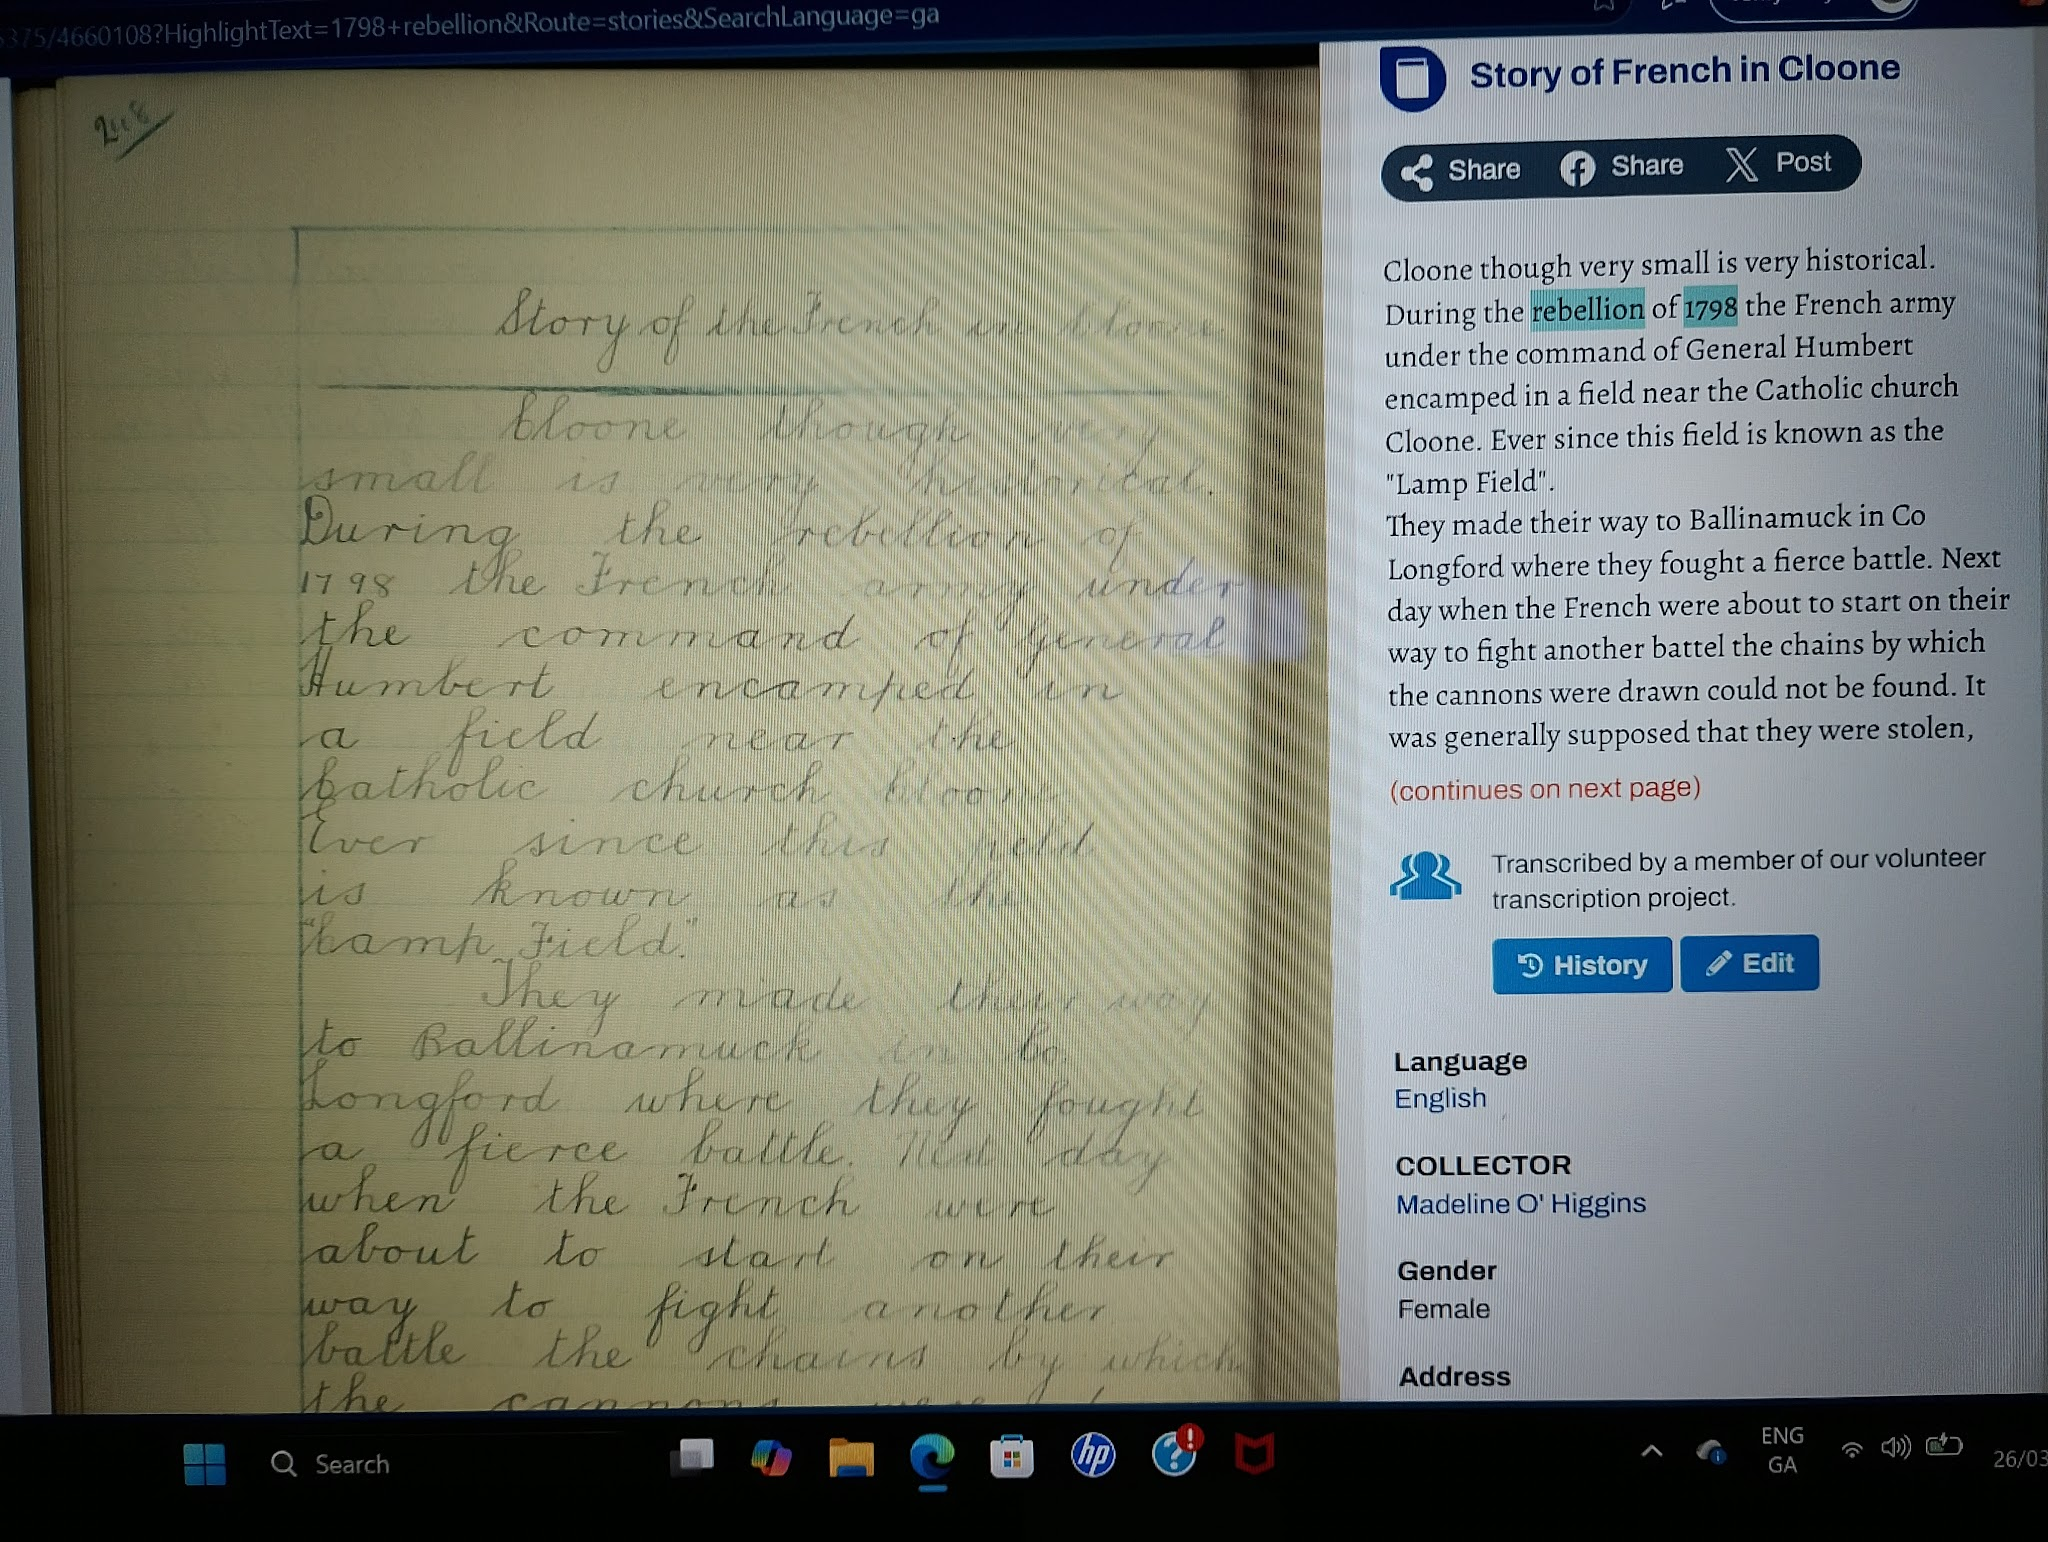 375/4660108?HighlightText=1798+rebellion&Route=stories&SearchLanguage=ga
248
Story of the French in Cloone
Cloone though very
small is very historical.
During the rebellion of
1798 the French army under
the command of General
Humbert encamped in
a field near the
Catholic church Cloone
Ever since this field
is known as the
"Camp Field."
They made their way
to Ballinamuck in Co
Longford where they fought
a fierce battle. Next day
when the French were
about to start on their
way to fight another
battle the chains by which
the cannons were
Story of French in Cloone
Share Share Post
Cloone though very small is very historical.
During the rebellion of 1798 the French army
under the command of General Humbert
encamped in a field near the Catholic church
Cloone. Ever since this field is known as the
"Lamp Field".
They made their way to Ballinamuck in Co
Longford where they fought a fierce battle. Next
day when the French were about to start on their
way to fight another battel the chains by which
the cannons were drawn could not be found. It
was generally supposed that they were stolen,
(continues on next page)
Transcribed by a member of our volunteer
transcription project.
History Edit
Language
English
COLLECTOR
Madeline O' Higgins
Gender
Female
Address
Search
hp
ENG
GA
26/03